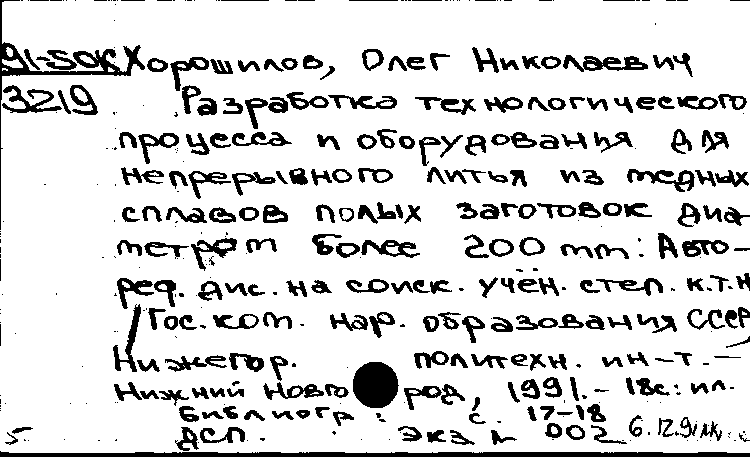 91-50К Хорошилов, Олег Николаевич
3219 Разработка технологического
процесса и оборудования для
непрерывного литья из медных
сплавов полых заготовок диа-
метром более 200 mm: Авто-
реф. дис. на соиск. учён. степ. к.т.н
/Гос. ком. нар. образования СССР
Нижегор. политехн. ин-т. –
Нижний Новгород, 1991. – 18с: ил.
Библиогр: с. 17-18
5. ДСП. Экз N 002 6.12.91